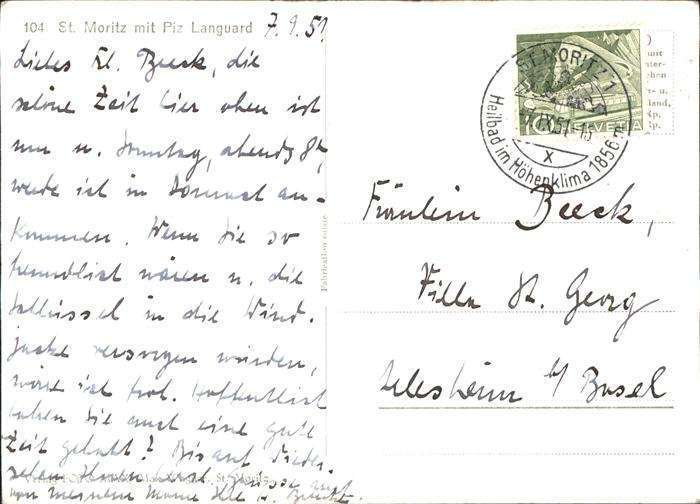 104 St. Moritz mit Piz Languard
7.9.51
Liebes Frl. Beeck, die
schöne Zeit hier oben ist
nun u. Sonntag, abends 8h,
werde ich in Dornach an-
kommen. Wenn Sie so
freundlich wären u. die
Schlüssel in die Wind-
jacke versorgen würden,
wäre ich froh. Hoffentlich
haben Sie auch eine gute
Zeit gehabt? Bis auf Wieder-
sehen Ihnen herzl. Grüsse auch
von meinem Manne
Fabrication suisse
ST. MORITZ 1
IX.51-15
X
Heilbad im Höhenklima 1856 m
10 HELVETIA
Fräulein Beeck,
Villa St. Georg
Arlesheim b/ Basel